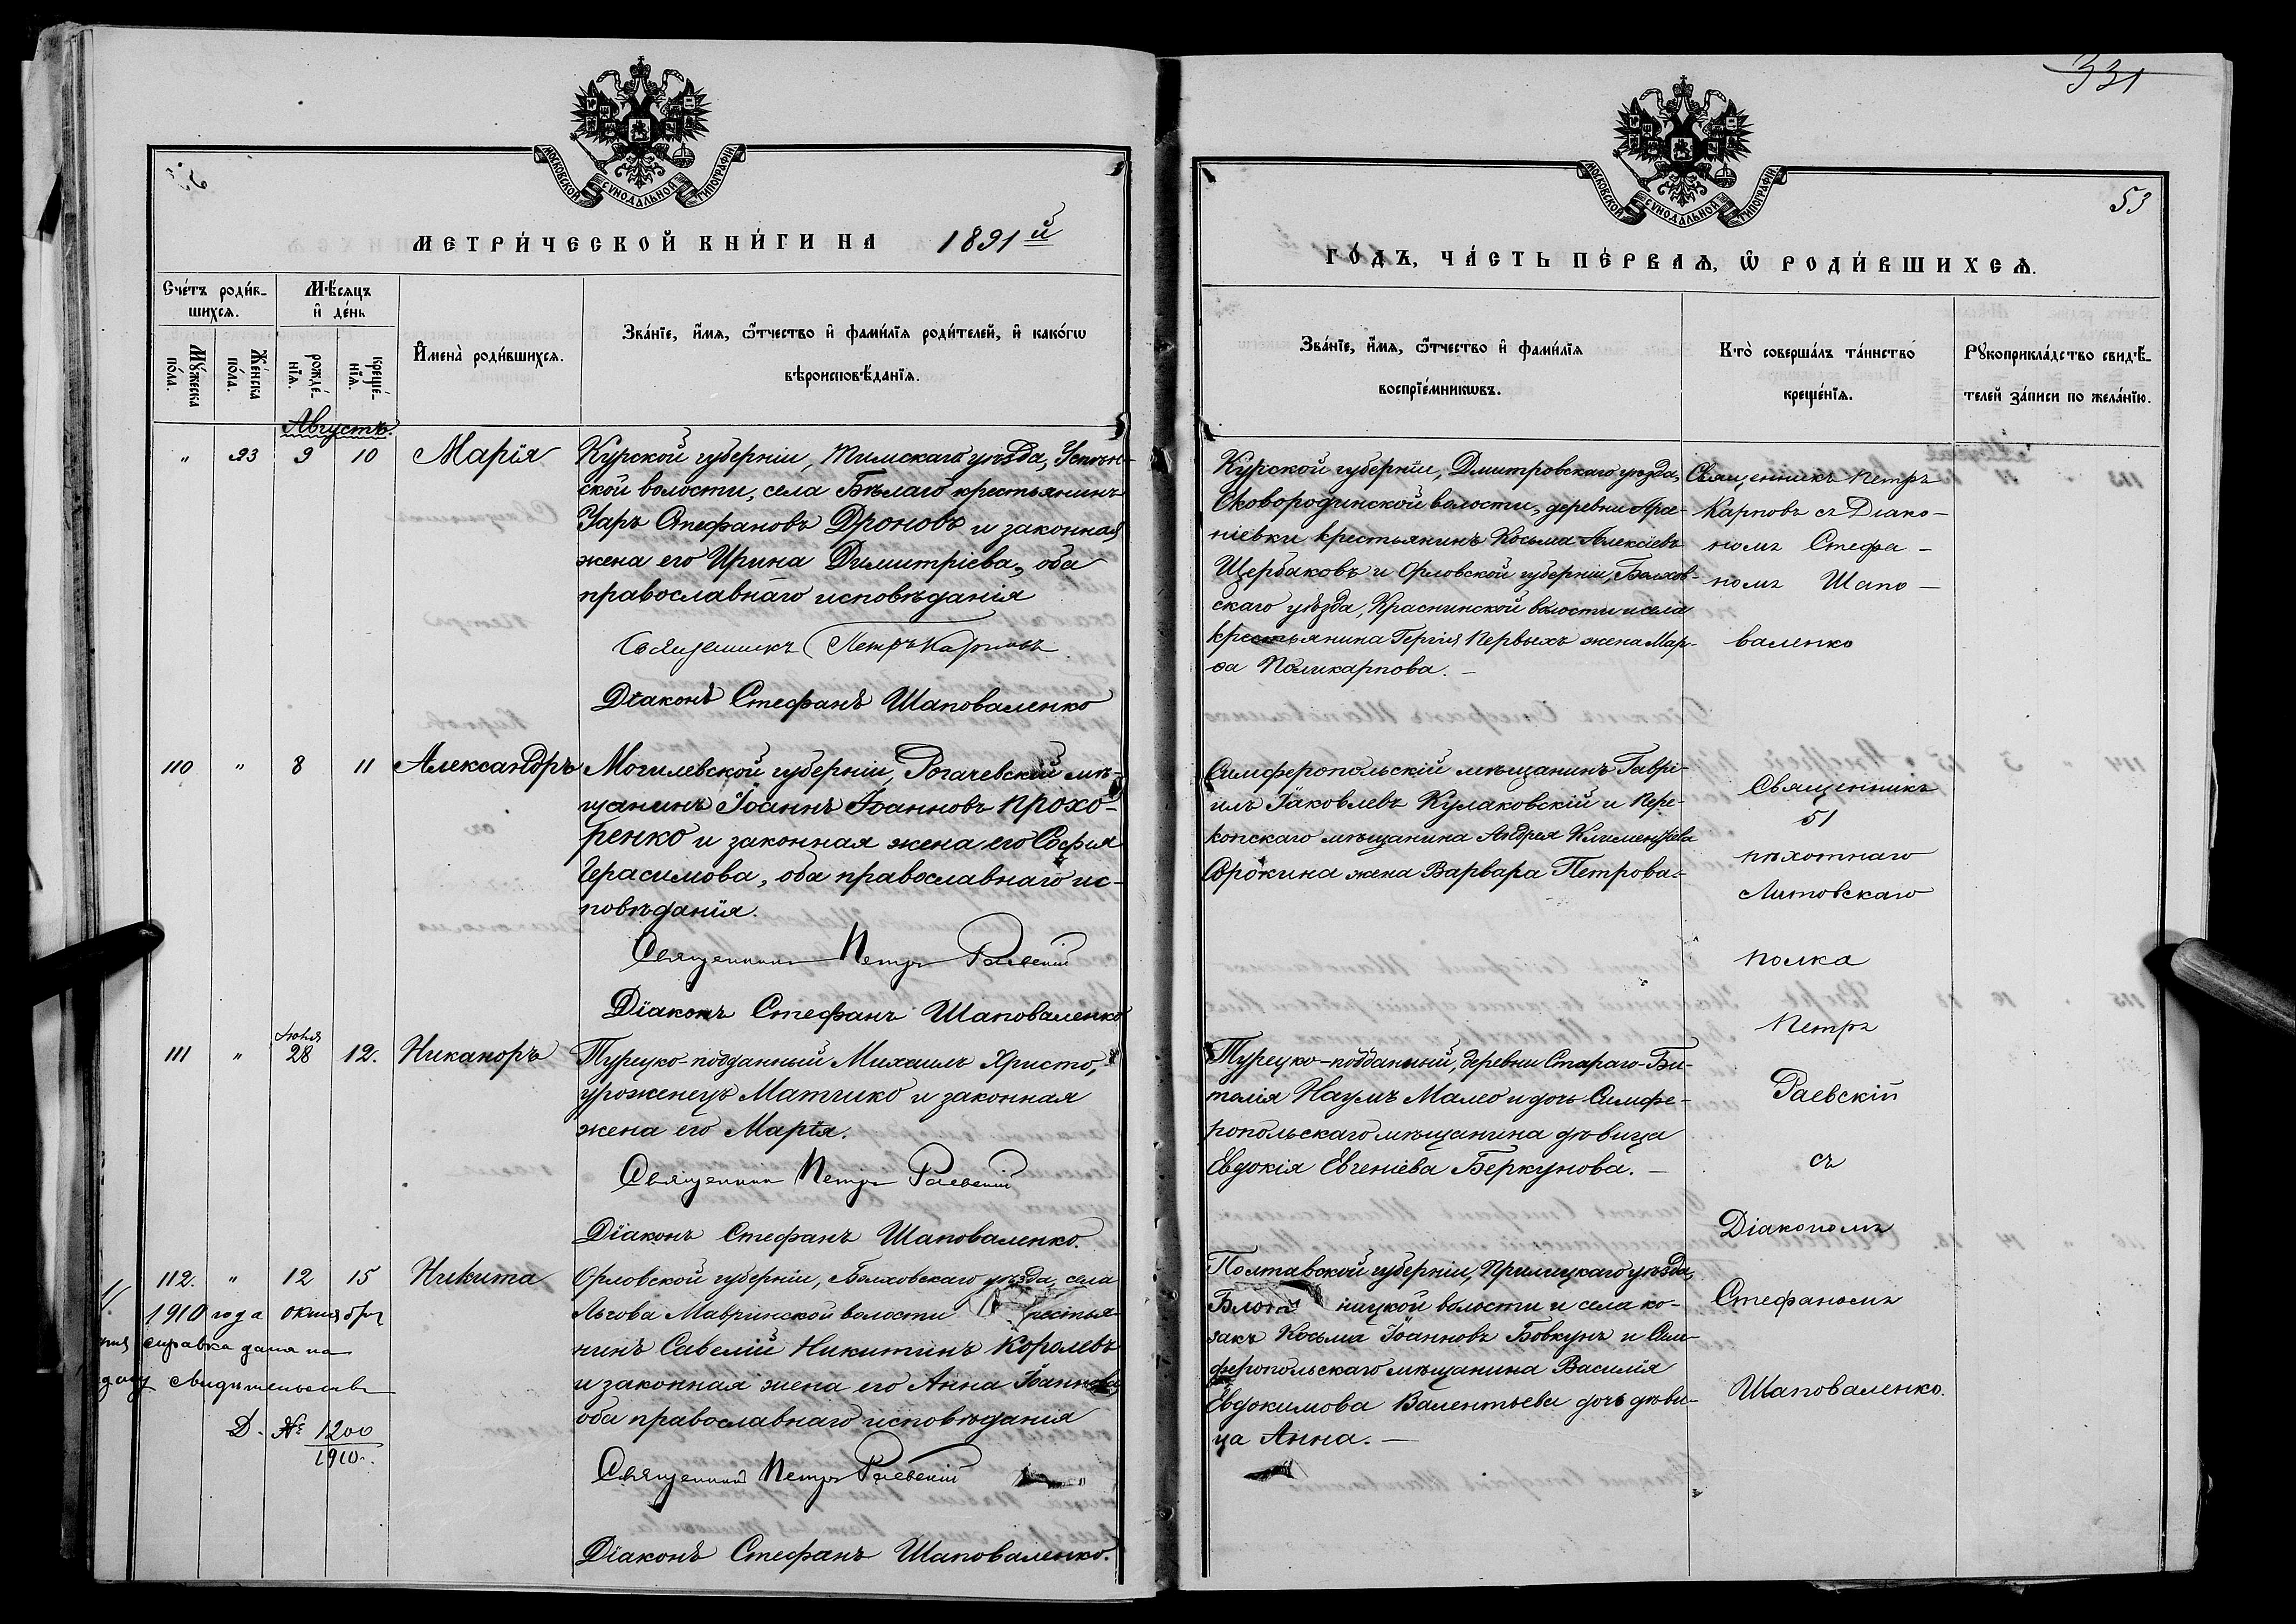 МОСКОВСКОЙ СѴНОДАЛЬНОЙ ТИПОГРАФІИ
МЕТРИ́ЧЕСКОЙ КНИ́ГИ НА 1891й
Сче́тъ роди́в-
шихсѧ.
Мѣ́сѧцъ
и҆ де́нь
Мꙋ́жеска
по́ла.
Же́нска
по́ла.
рожде́-
нїѧ.
креще́-
нїѧ.
И҆мена̀ роди́вшихсѧ.
Зва́нїе, и҆́мѧ, ѻ҆́тчество и҆ фами́лїѧ роди́телей, и҆ како́гѡ
вѣроисповѣ́данїѧ.
Августъ.
" 23 9 10 Марія
Курской губерніи, Тимскаго уѣзда, Успен-
ской волости, села Бѣлаго крестьянинъ
Уаръ Стефановъ Дроновъ и законная
жена его Ирина Димитріева, оба
православнаго исповѣданія
Священникъ Петръ Карповъ
Діаконъ Стефанъ Шаповаленко
110 " 8 11 Александръ
Могилевской губерніи, Рогачевскій мѣ-
щанинъ Іоаннъ Іоанновъ Прохо-
ренко и законная жена его Софія
Герасимова, оба православнаго ис-
повѣданія.
Священникъ Петръ Раевскій
Діаконъ Стефанъ Шаповаленко
111 " Іюля 28 12. Никаноръ
Турецко-подданный Михаилъ Христо,
уроженецъ Матчико и законная
жена его Марія.
Священникъ Петръ Раевскій
Діаконъ Стефанъ Шаповаленко.
112. " 12 15 Никита
Орловской губерніи, Болховскаго уѣзда, села
Льгова Мавринской волости крестья-
нинъ Савелій Никитинъ Королевъ
и законная жена его Анна Іоаннова
оба православнаго исповѣданія
Священникъ Петръ Раевскій
Діаконъ Стефанъ Шаповаленко.
1910 года октября
справка дана на
свидѣтельств
Д. № 1200
1910.
331
53
МОСКОВСКОЙ СѴНОДАЛЬНОЙ ТИПОГРАФІИ
ГО́ДЪ, ЧА́СТЬ ПЕ́РВАѦ, Ѡ҆ РОДИ́ВШИХСѦ.
Зва́нїе, и҆́мѧ, ѻ҆́тчество и҆ фами́лїѧ
воспрїе́мникѡвъ.
Кто̀ соверша́лъ та́инство
креще́нїѧ.
Рꙋкоприкла́дство свидѣ́-
телей за́писи по жела́нїю.
Курской губерніи, Дмитровскаго уѣзда,
Сковородинской волости, деревни Арсе-
ніевки крестьянинъ Косьма Алексѣевъ
Щербаковъ и Орловской губерніи, Болхов-
скаго уѣзда, Краснинской волости и села
крестьянина Первыхъ жена Мар-
ѳа Поликарпова. —
Священникъ Петръ
Карповъ съ Діако-
номъ Стефа-
номъ Шапо-
валенко
Симферопольскій мѣщанинъ Гаврі-
илъ Іаковлевъ Кулаковскій и Пере-
копскаго мѣщанина Андрея Климентіева
Сорокина жена Варвара Петрова.
Священникъ
51
пѣхотнаго
Литовскаго
полка
Петръ
Раевскій
съ
Діакономъ
Стефаномъ
Шаповаленко.
Турецко-подданный, деревни Стараго-Би-
толія Наумъ Малео и дочь Симфе-
ропольскаго мѣщанина дѣвица
Евдокія Евгеніева Беркунова. —
Полтавской губерніи, Прилуцкаго уѣзда,
ницкой волости и села ко-
закъ Косьма Іоанновъ Бовкунъ и Сим-
феропольскаго мѣщанина Василія
Евдокимова Валентьева дочь дѣви-
ца Анна. —